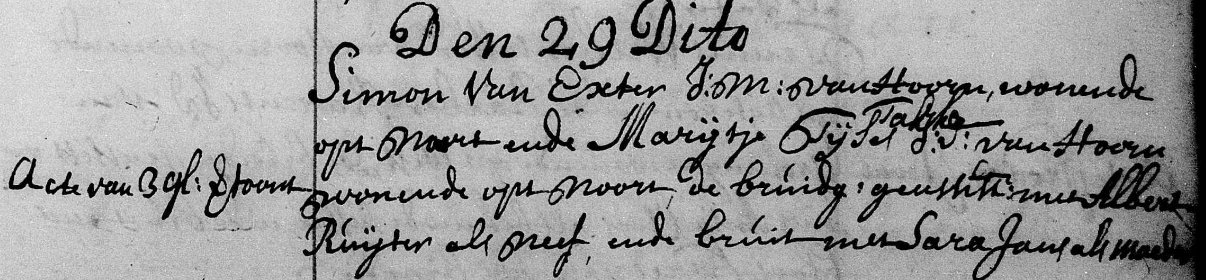 Den 29 Dito
Simon Van Exter J:M: van Hoorn, wonende
opt Noort ende Marijtje Tijses J:D: van Hoorn
Acte van 3 gl: getoont
wonende opt Noort, de bruidg: geassist: met Albert
Ruijter als neef, ende bruit met Sara Jans als moeder